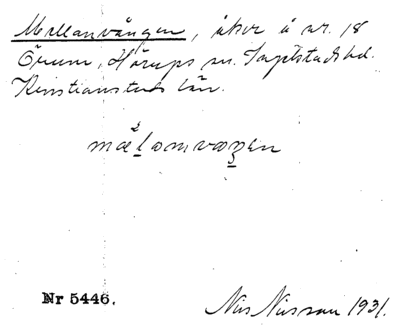 Mellanvången, åker å nr. 18
Örum, Hörups sn. Ingelstads hd.
Kristianstads län.
mælomvaŋen
Nr 5446.
Nils Nilsson 1931.